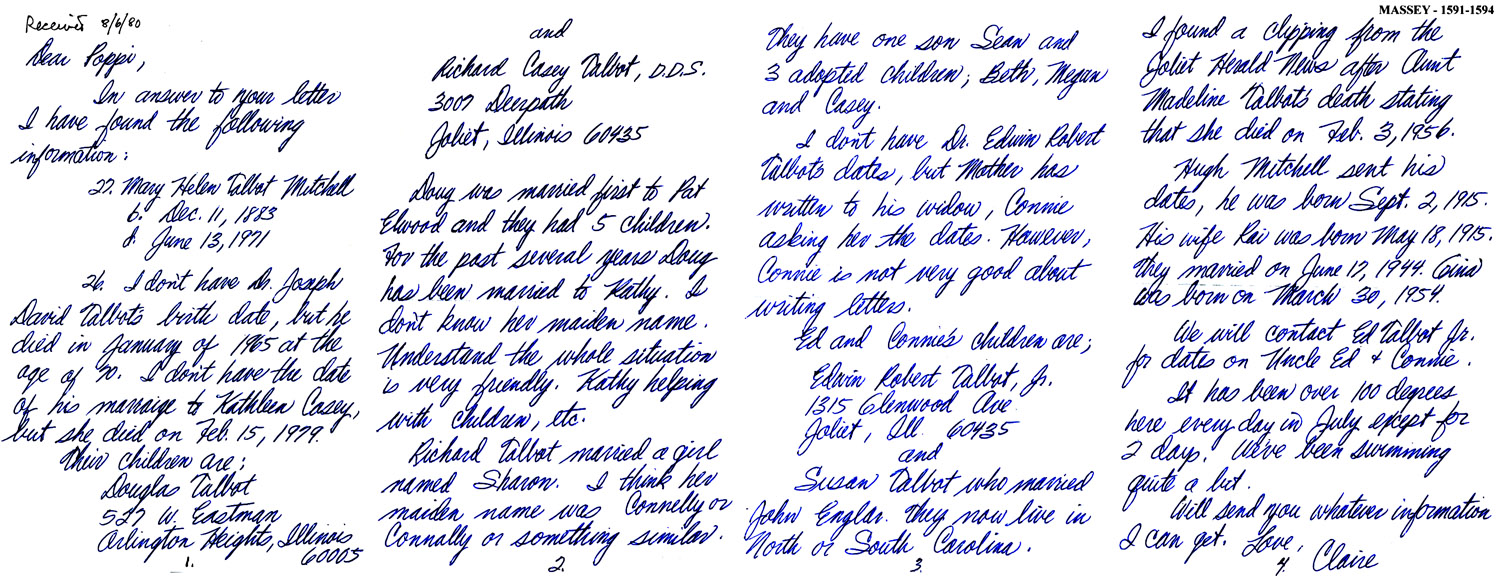 MASSEY - 1591-1594
Received 8/6/80
Dear Poppi,
In answer to your letter
I have found the following
information:
27. Mary Helen Talbot Mitchell
b. Dec. 11, 1883
d. June 13, 1971
26. I don't have Dr. Joseph
David Talbot's birth date, but he
died in January of 1965 at the
age of 70. I don't have the date
of his marraige to Kathleen Casey,
but she died on Feb. 15, 1979.
Their children are:
Douglas Talbot
527 W. Eastman
Arlington Heights, Illinois
60005
1.
and
Richard Casey Talbot, D.D.S.
3007 Deerpath
Joliet, Illinois 60435
Doug was married first to Pat
Elwood and they had 5 children.
For the past several years Doug
has been married to Kathy. I
don't know her maiden name.
Understand the whole situation
is very friendly. Kathy helping
with children, etc.
Richard Talbot married a girl
named Sharon. I think her
maiden name was Connelly or
Connally or something similar.
2.
They have one son Sean and
3 adopted children; Beth, Megan
and Casey.
I don't have Dr. Edwin Robert
Talbot's dates, but Mother has
written to his widow, Connie
asking her the dates. However,
Connie is not very good about
writing letters.
Ed and Connie's children are;
Edwin Robert Talbot, Jr.
1315 Glenwood Ave
Joliet, Ill. 60435
and
Susan Talbot who married
John Englar. They now live in
North or South Carolina.
3.
I found a clipping from the
Joliet Herald News after Aunt
Madeline Talbot's death stating
that she died on Feb. 3, 1956.
Hugh Mitchell sent his
dates, he was born Sept. 2, 1915.
His wife Rai was born May 18, 1915.
They married on June 17, 1944. Gina
was born on March 30, 1954.
We will contact Ed Talbot Jr.
for dates on Uncle Ed + Connie.
It has been over 100 degrees
here every day in July except for
2 days. We've been swimming
quite a bit.
Will send you whatever information
I can get. Love,
4. Claire